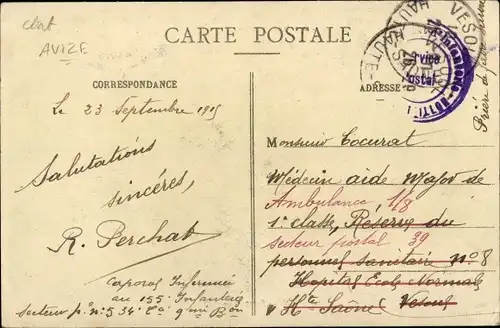 chat
AVIZE
CARTE POSTALE
CORRESPONDANCE
ADRESSE
Le 23 Septembre 1915
Salutations
sincéres,
R. Perchat
Caporal Infirmier
au 155 Infanterie
secteur p. n° 5 34
VESOUL
HAUTE-
Service
Postal
Prière de faire suivre
Monsieur Cocurat
Médecin aide Major de
Ambulance 1/8
1e classe, Reserve du
secteur postal 39
personnel sanitaire n° 8
Hopital Ecole Normale
Hte Saône Vesoul